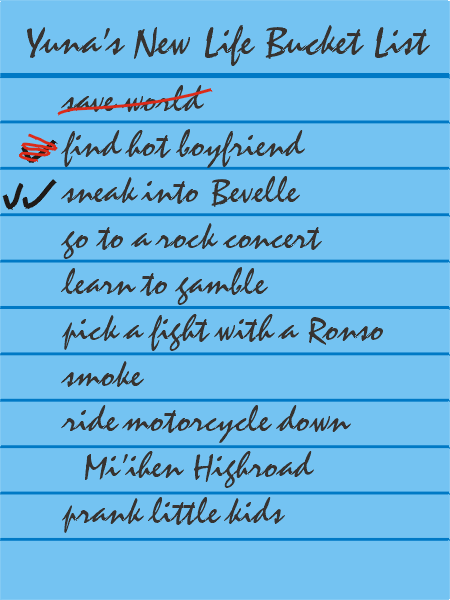 Yuna's New Life Bucket List
save world
find hot boyfriend
sneak into Bevelle
go to a rock concert
learn to gamble
pick a fight with a Ronso
smoke
ride motorcycle down
Mi'ihen Highroad
prank little kids